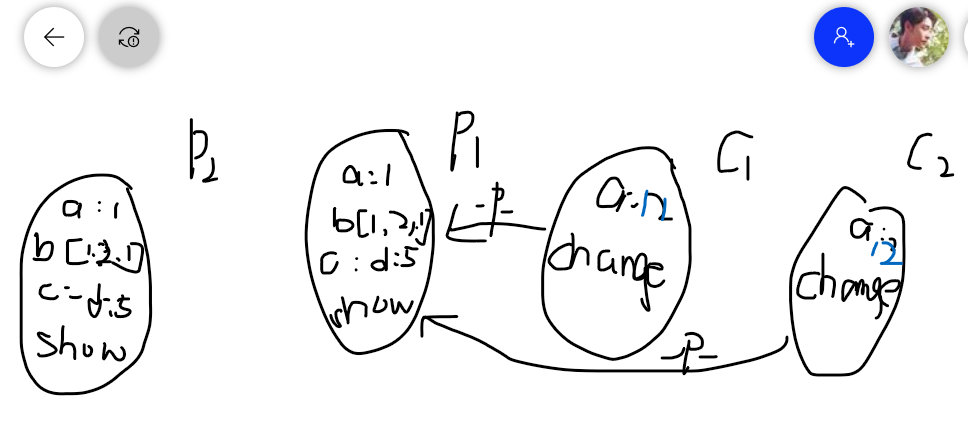 P2
a:1
b[1,2,1]
c-d:5
show
P1
a:1
b[1,2,1]
c:d:5
show
-P-
C1
a:12
change
-P-
C2
a:12
change